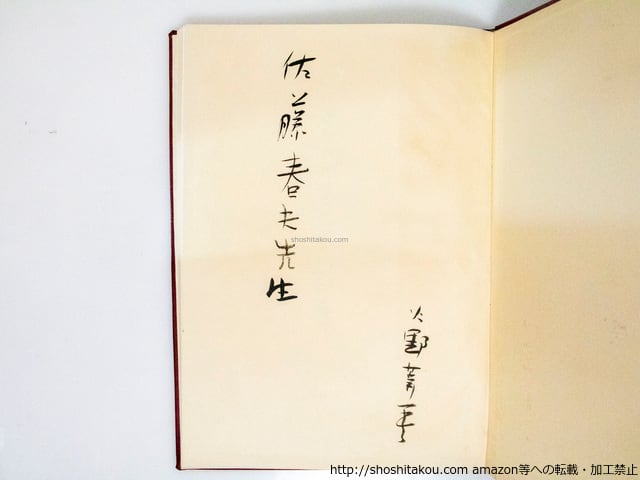 佐藤春夫先生
火野葦平
shoshitakou.com
http://shoshitakou.com amazon等への転載・加工禁止